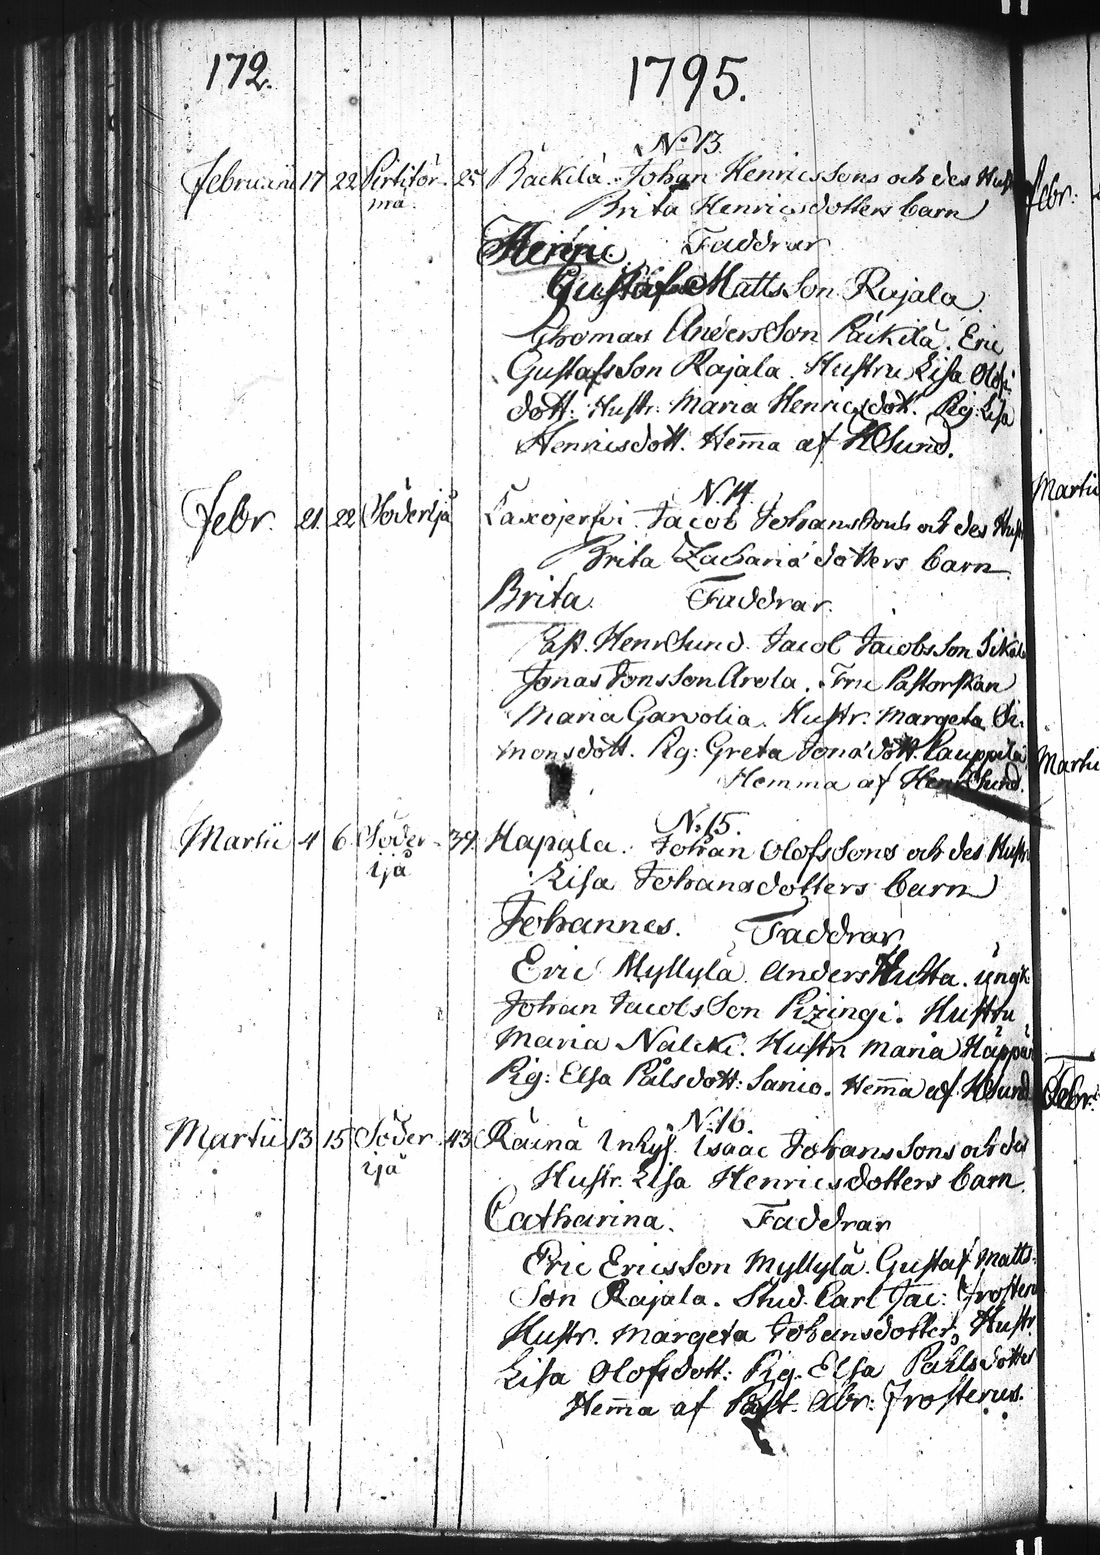 172.
1795.
No 13.
Februarii 17 22 Pirtitör- 25 Räckilä. Johan Henricssons och des Hust
mä
Brita Henricsdotters barn
Henric. Faddrar
Gustaf Mattsson Rajala.
Thomas Andersson Räckilä. Eric
Gustafsson Rajala. Hustru Lisa Olofs
dott: Hustr: Maria Henricsdott. Pig: Lisa
Henricsdott. Hem̄a af HSund.
N. 14.
Febr. 21. 22 Söderijä Laxojerfvi. Jacob Johanssons och des Hust
Brita Zachariä dotters barn
Brita. Faddrar.
Past. HenrSund. Jacob Jacobsson
Jonas Jonsson Arola. Fru Pastorskan
Maria Garvolia. Hustr: Margeta Si-
monsdott. Pig: Greta Jonädott. Kauppila
Hemma af HenrSund.
N: 15.
Martii 4 6 Söder- 39. Hapala. Johan Olofssons och des Hustr
ijä
Lisa Johansdotters barn
Johannes. Faddrar
Eric Myllylä. Anders Huhta. ungk
Johan Jacobsson Pizingi. Hustru
Maria Nälcki. Hustr Maria
Pig: Elsa Pålsdott: Sanio. Hem̄a af HSund.
N: 16.
Martii 13 15 Söder- 43 Räinä Inhys. Isaac Johanssons och des
ijä
Hustr. Lisa Henricsdotters barn.
Catharina. Faddrar
Eric Ericsson Myllylä. Gustaf Matts-
son Rajala. Stud. Carl Jac: Frosterus
Hustr. Margeta Johansdotter, Hustr.
Lisa Olofsdott: Pig. Elsa Påhlsdotter
Hem̄a af Past. Abr: Frosterus.
Febr:
Martii
Martii
Febr.